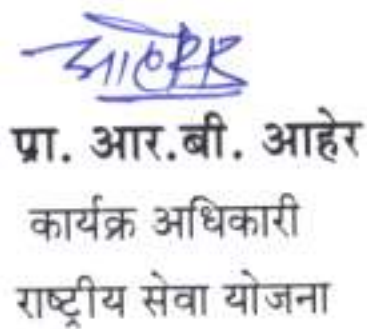 प्रा. आर.बी. आहेर
कार्यक्र अधिकारी
राष्ट्रीय सेवा योजना